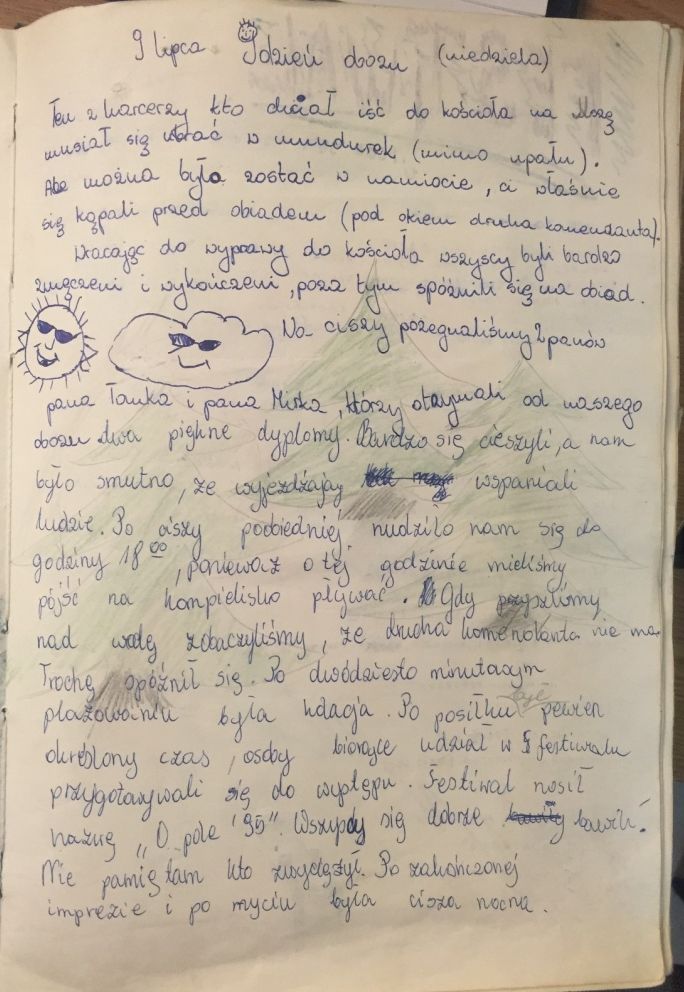 9 lipca 9 dzień obozu (niedziela)
Ten z harcerzy kto chciał iść do kościoła na Mszę
musiał się ubrać w mundurek (mimo upału).
Abe można była zostać w namiocie, ci właśnie
się kąpali przed obiadem (pod okiem druha komendanta).
Wracając do wyprawy do kościoła wszyscy byli bardzo
zmęczeni i wykończeni, poza tym spóźnili się na obiad.
Na ciszy pożegnaliśmy 2 panów
pana Tomka i pana Mirka, którzy otrzymali od naszego
obozu dwa piękne dyplomy. Bardzo się cieszyli, a nam
było smutno, że wyjeżdżają wspaniali
ludzie. Po ciszy poobiedniej nudziło nam się do
godziny 18 00, ponieważ o tej godzinie mieliśmy
pójść na kompielisko pływać. Gdy przyszliśmy
nad wodę zobaczyliśmy, że druha komendanta nie ma.
Trochę spóźnił się. Po dwódziesto minutowym
plażowaniu była kolacja. Po posiłku pewien
określony czas, osoby biorące udział w festiwalu
przygotowywali się do występu. Festiwal nosił
nazwę „O pole '95". Wszyscy się dobrze bawili!
Nie pamiętam kto zwyciężył. Po zakończonej
imprezie i po myciu była cisza nocna.